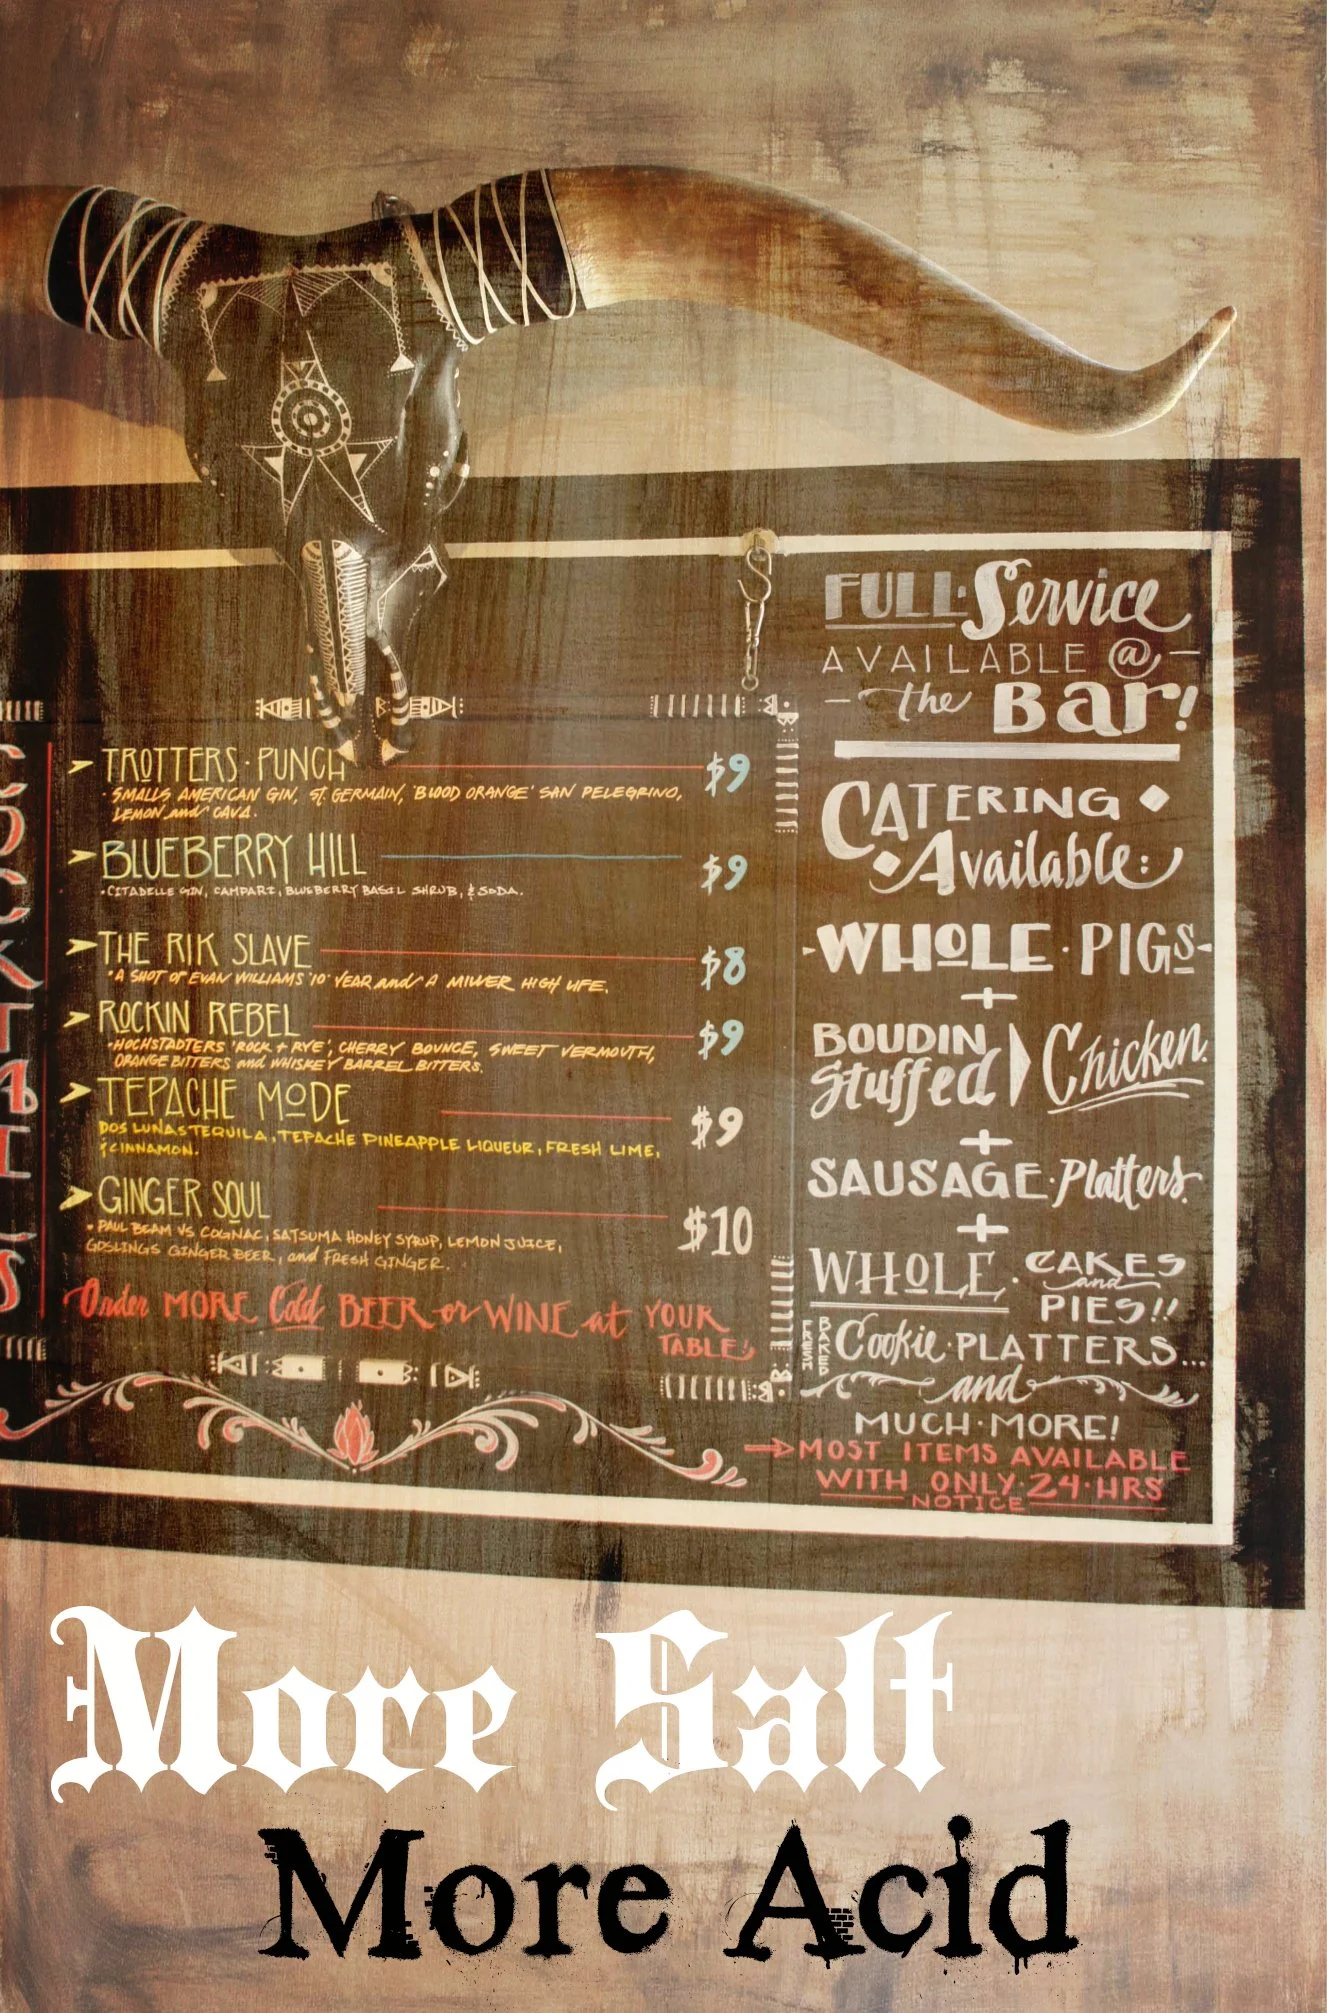 TROTTERS · PUNCH $9
· SMALLS AMERICAN GIN, St. GERMAIN, 'BLOOD ORANGE' SAN PELEGRINO,
LEMON and CAVA.
BLUEBERRY HILL $9
· CITADELLE GIN, CAMPARI, BLUEBERRY BASIL SHRUB, & SODA.
THE RIK SLAVE $8
· A SHOT OF EVAN WILLIAMS '10' YEAR and A MILLER HIGH LIFE.
ROCKIN REBEL $9
· HOCHSTADTERS 'ROCK + RYE', CHERRY BOUNCE, SWEET VERMOUTH,
ORANGE BITTERS and WHISKEY BARREL BITTERS.
TEPACHE MODE $9
DOS LUNAS TEQUILA, TEPACHE PINEAPPLE LIQUEUR, FRESH LIME,
& CINNAMON.
GINGER SOUL $10
· PAUL BEAM VS COGNAC, SATSUMA HONEY SYRUP, LEMON JUICE,
GOSLINGS GINGER BEER, and FRESH GINGER.
Order MORE Cold BEER or WINE at YOUR
TABLE!
FULL · Service
AVAILABLE @
the Bar!
CATERING
Available:
WHOLE · PIGS
+
BOUDIN
Stuffed Chicken
+
SAUSAGE · Platters
+
WHOLE · CAKES
and
PIES!!
FRESH BAKED Cookie · PLATTERS...
and
MUCH · MORE!
MOST ITEMS AVAILABLE
WITH ONLY · 24 · HRS
NOTICE
More Salt
More Acid